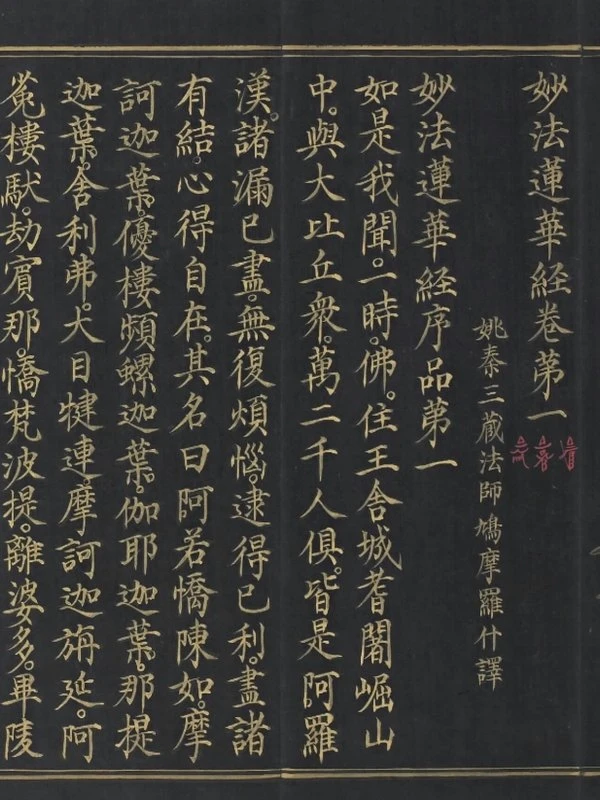 妙法蓮華經卷第一
姚秦三藏法師鳩摩羅什譯
妙法蓮華經序品第一
如是我聞。一時。佛。住王舍城耆闍崛山
中。與大比丘衆。萬二千人俱。皆是阿羅
漢。諸漏已盡。無復煩惱。逮得己利。盡諸
有結。心得自在。其名曰阿若憍陳如。摩
訶迦葉。優樓頻螺迦葉。伽耶迦葉。那提
迦葉。舍利弗。大目犍連。摩訶迦旃延。阿
㝹樓馱。劫賓那。憍梵波提。離婆多。畢陵